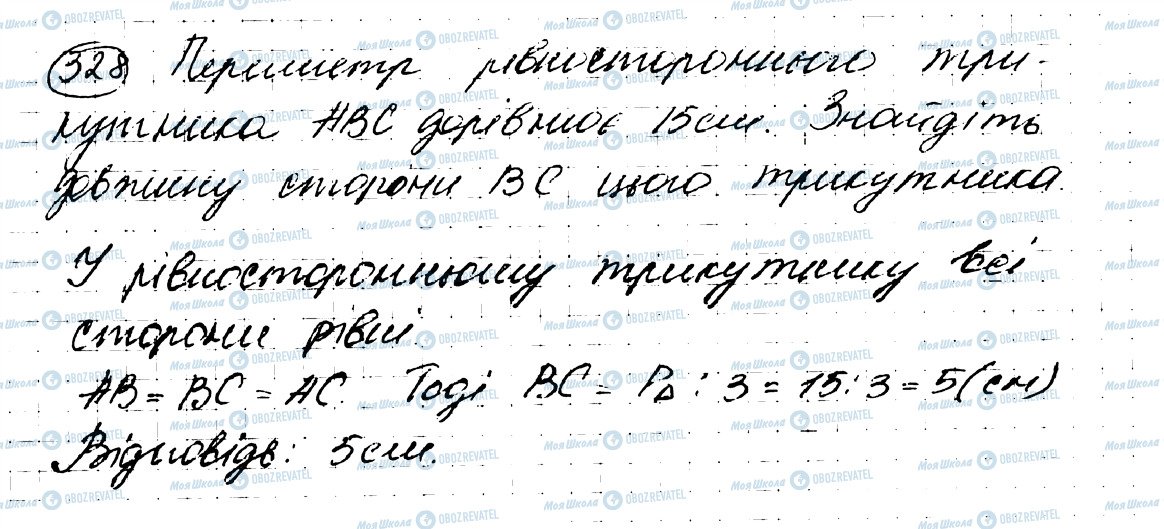 328 Периметр рівностороннього три-
кутника ABC дорівнює 15 см. Знайдіть
довжину сторони BC цього трикутника.
У рівносторонньому трикутнику всі
сторони рівні.
AB = BC = AC. Тоді BC = P△ : 3 = 15 : 3 = 5 (см)
Відповідь: 5 см.